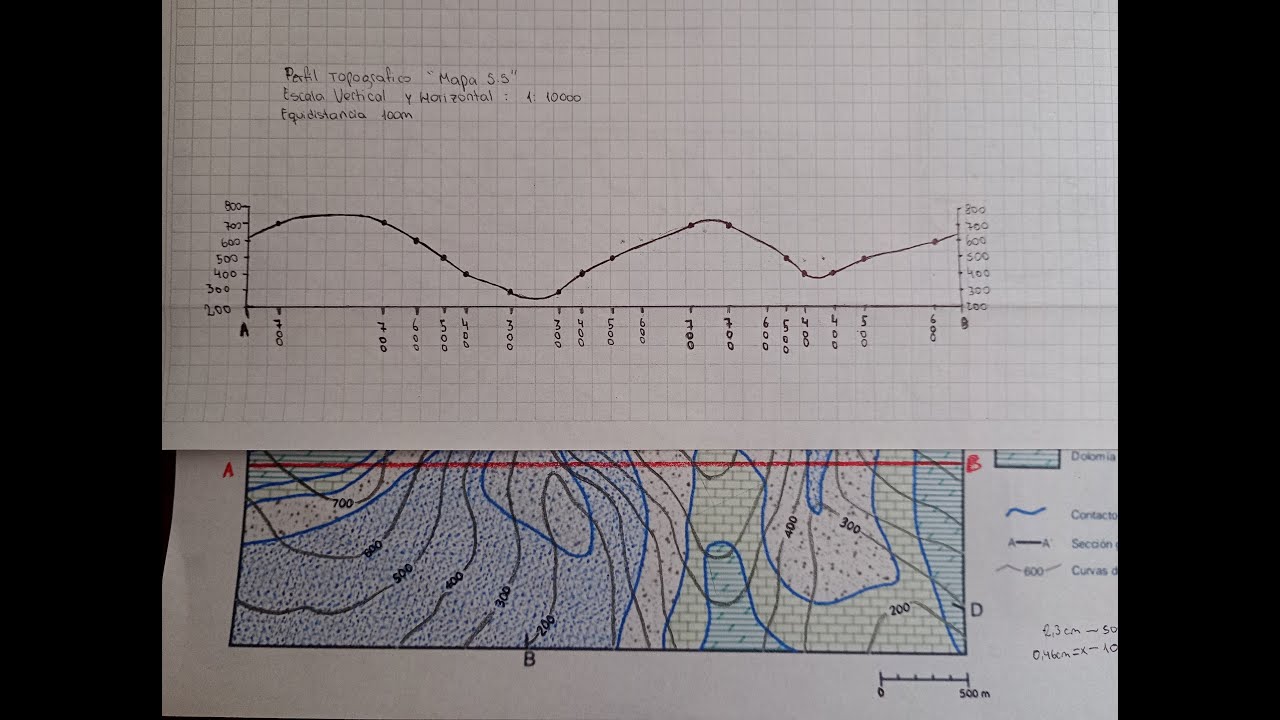 Perfil Topografico "Mapa 5.5"
Escala Vertical y Horizontal : 1: 10000
Equidistancia 100m
800 800
700 700
600 600
500 500
400 400
300 300
200 200
A 700 700 600 500 400 300 300 400 500 600 700 700 600 500 400 400 500 600 B
A B Dolomía
700
600
500
400
300
200
400
300
200
Contacto
A A' Sección
600 Curvas d
D
B
0 500 m
2,3cm — 50
0,46cm = x — 10